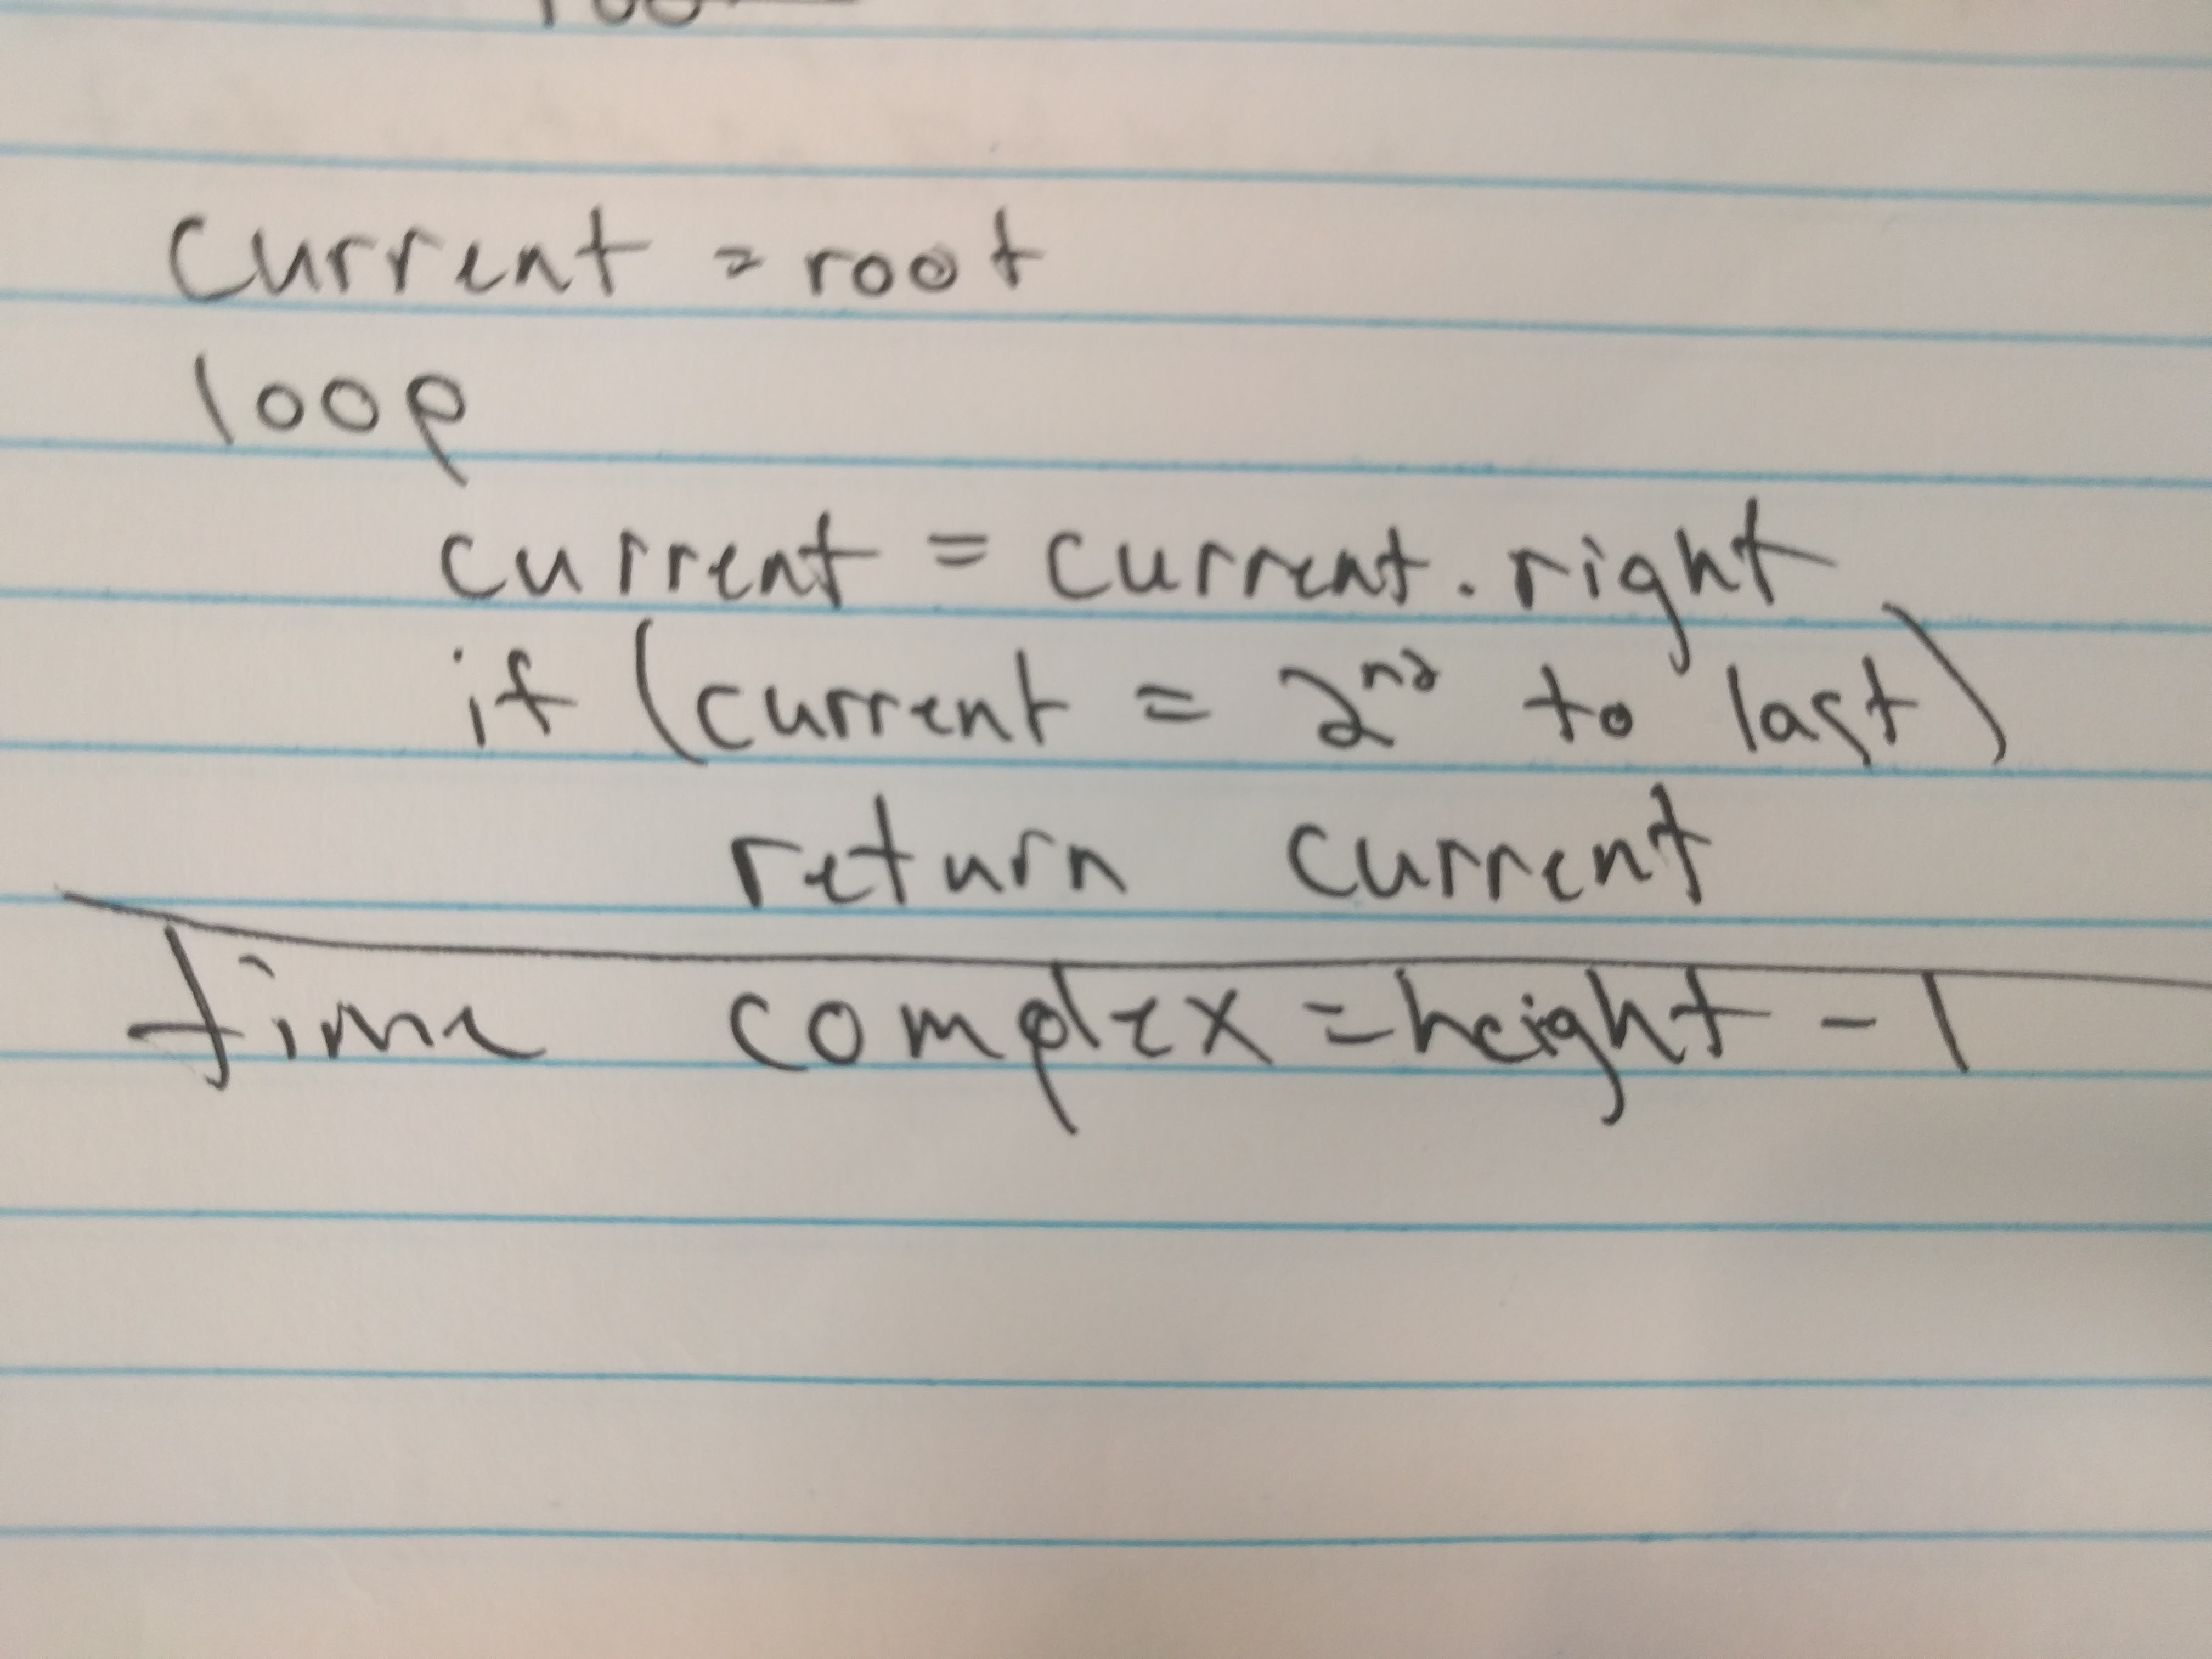 current = root
loop
current = current.right
if (current = 2nd to last)
return current
time complex = height - 1